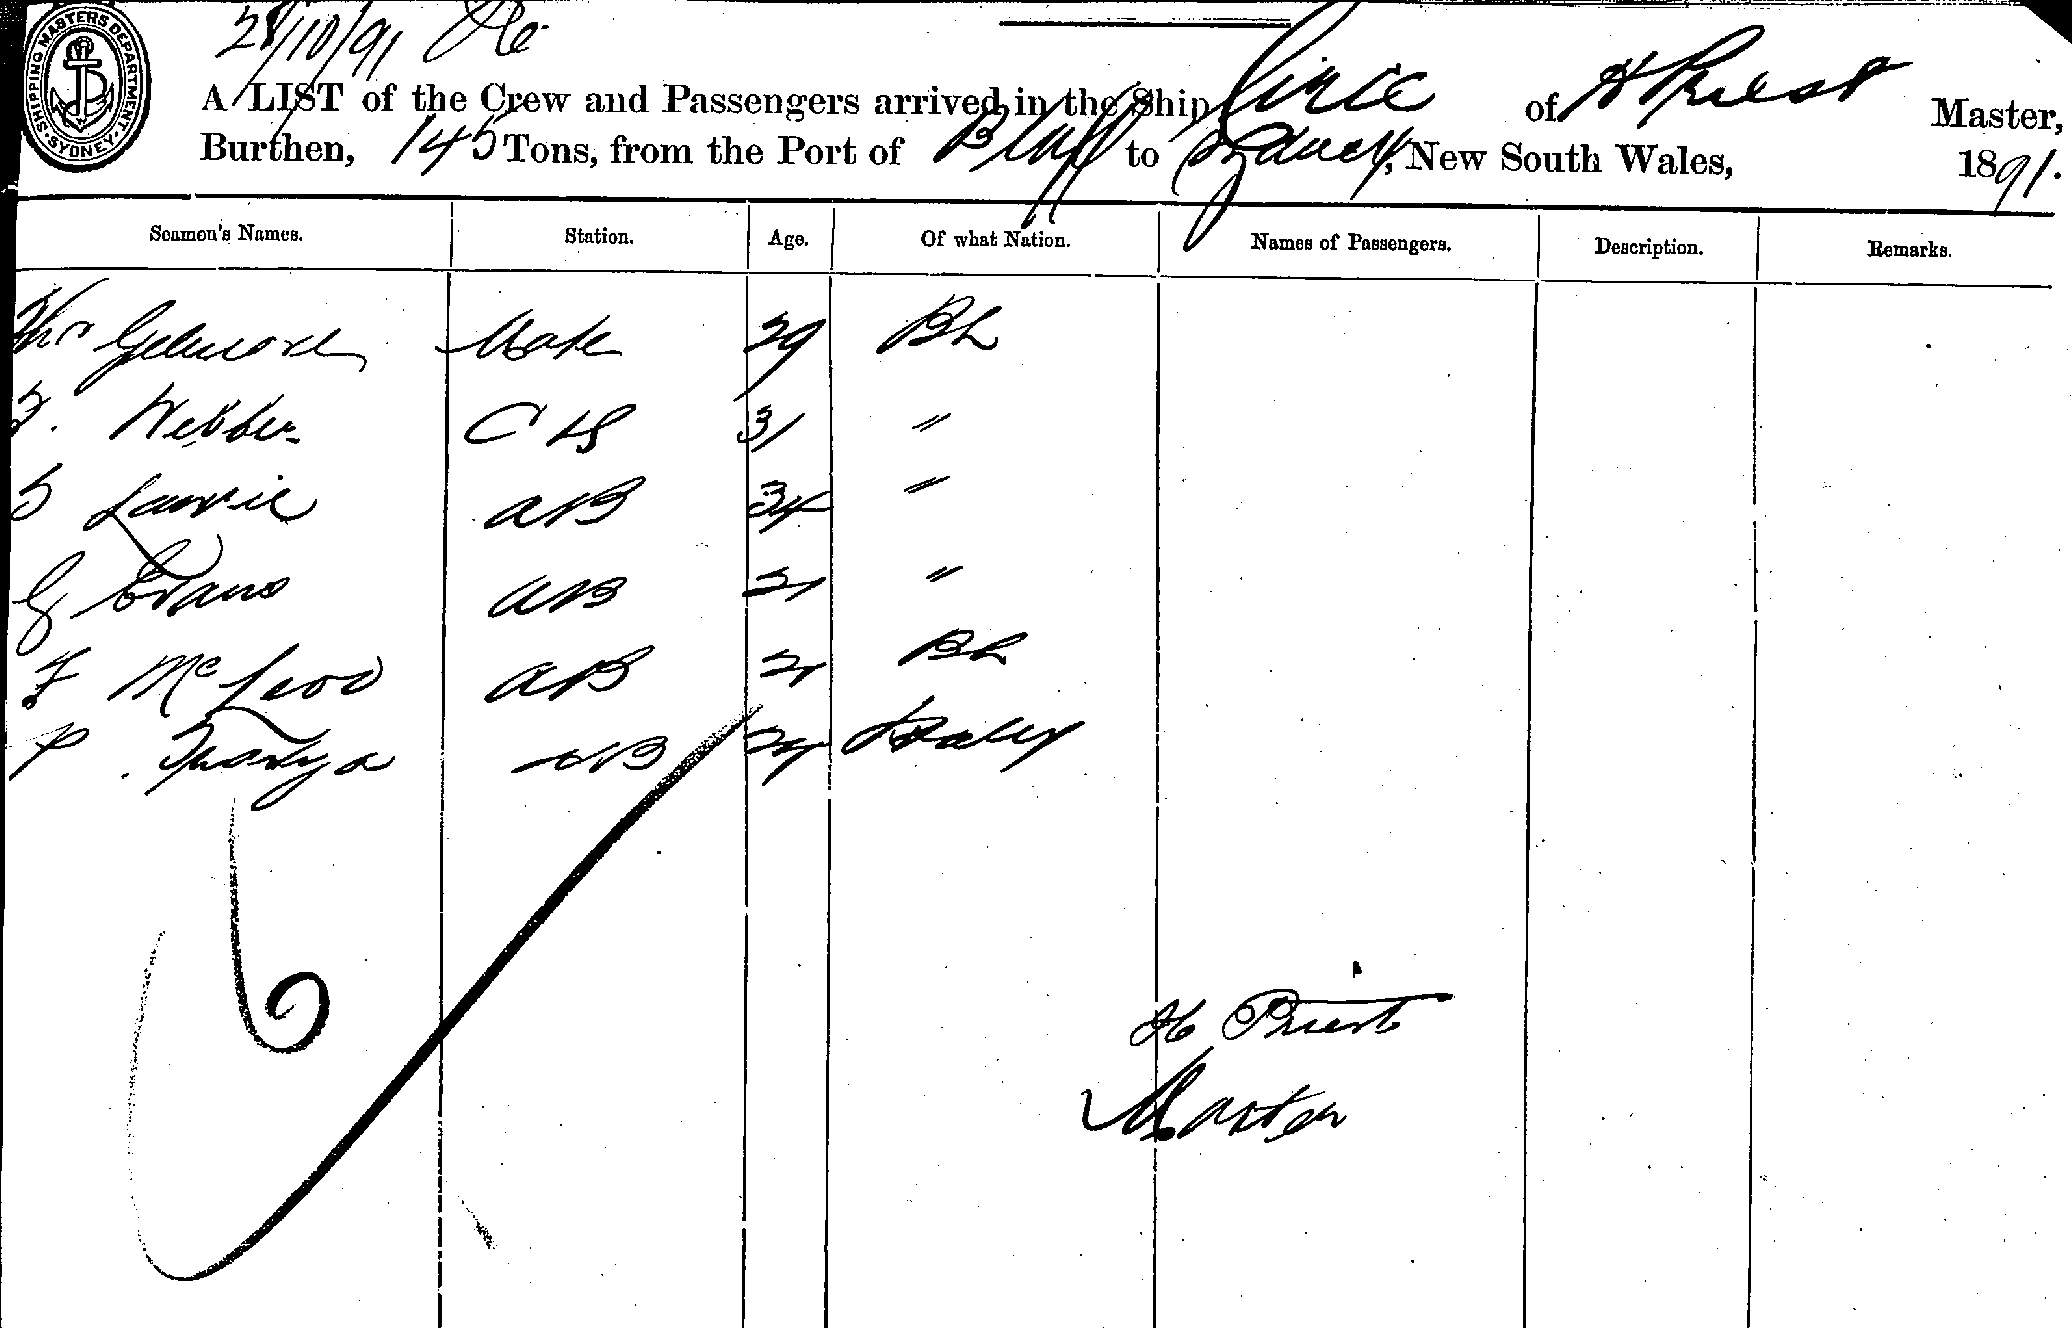 SHIPPING MASTERS DEPARTMENT SYDNEY
28/10/91
A LIST of the Crew and Passengers arrived in the Ship of H Priest Master,
Burthen, 145 Tons, from the Port of Bluff to Sydney, New South Wales, 1891.
Seamen's Names. Station. Age. Of what Nation. Names of Passengers. Description. Remarks.
Mate 29 Bh
F. Webber C & S 31 "
Lawrie AB 34 "
G Evans AB 21 "
F McLeod AB 21 Bh
P. AB 24 Italy
6
H Priest
Master